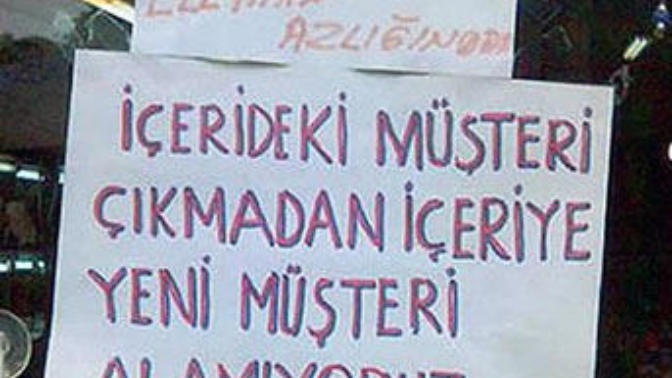 AZLIĞINDAN
İÇERİDEKİ MÜŞTERİ
ÇIKMADAN İÇERİYE
YENİ MÜŞTERİ
ALAMIYORUZ